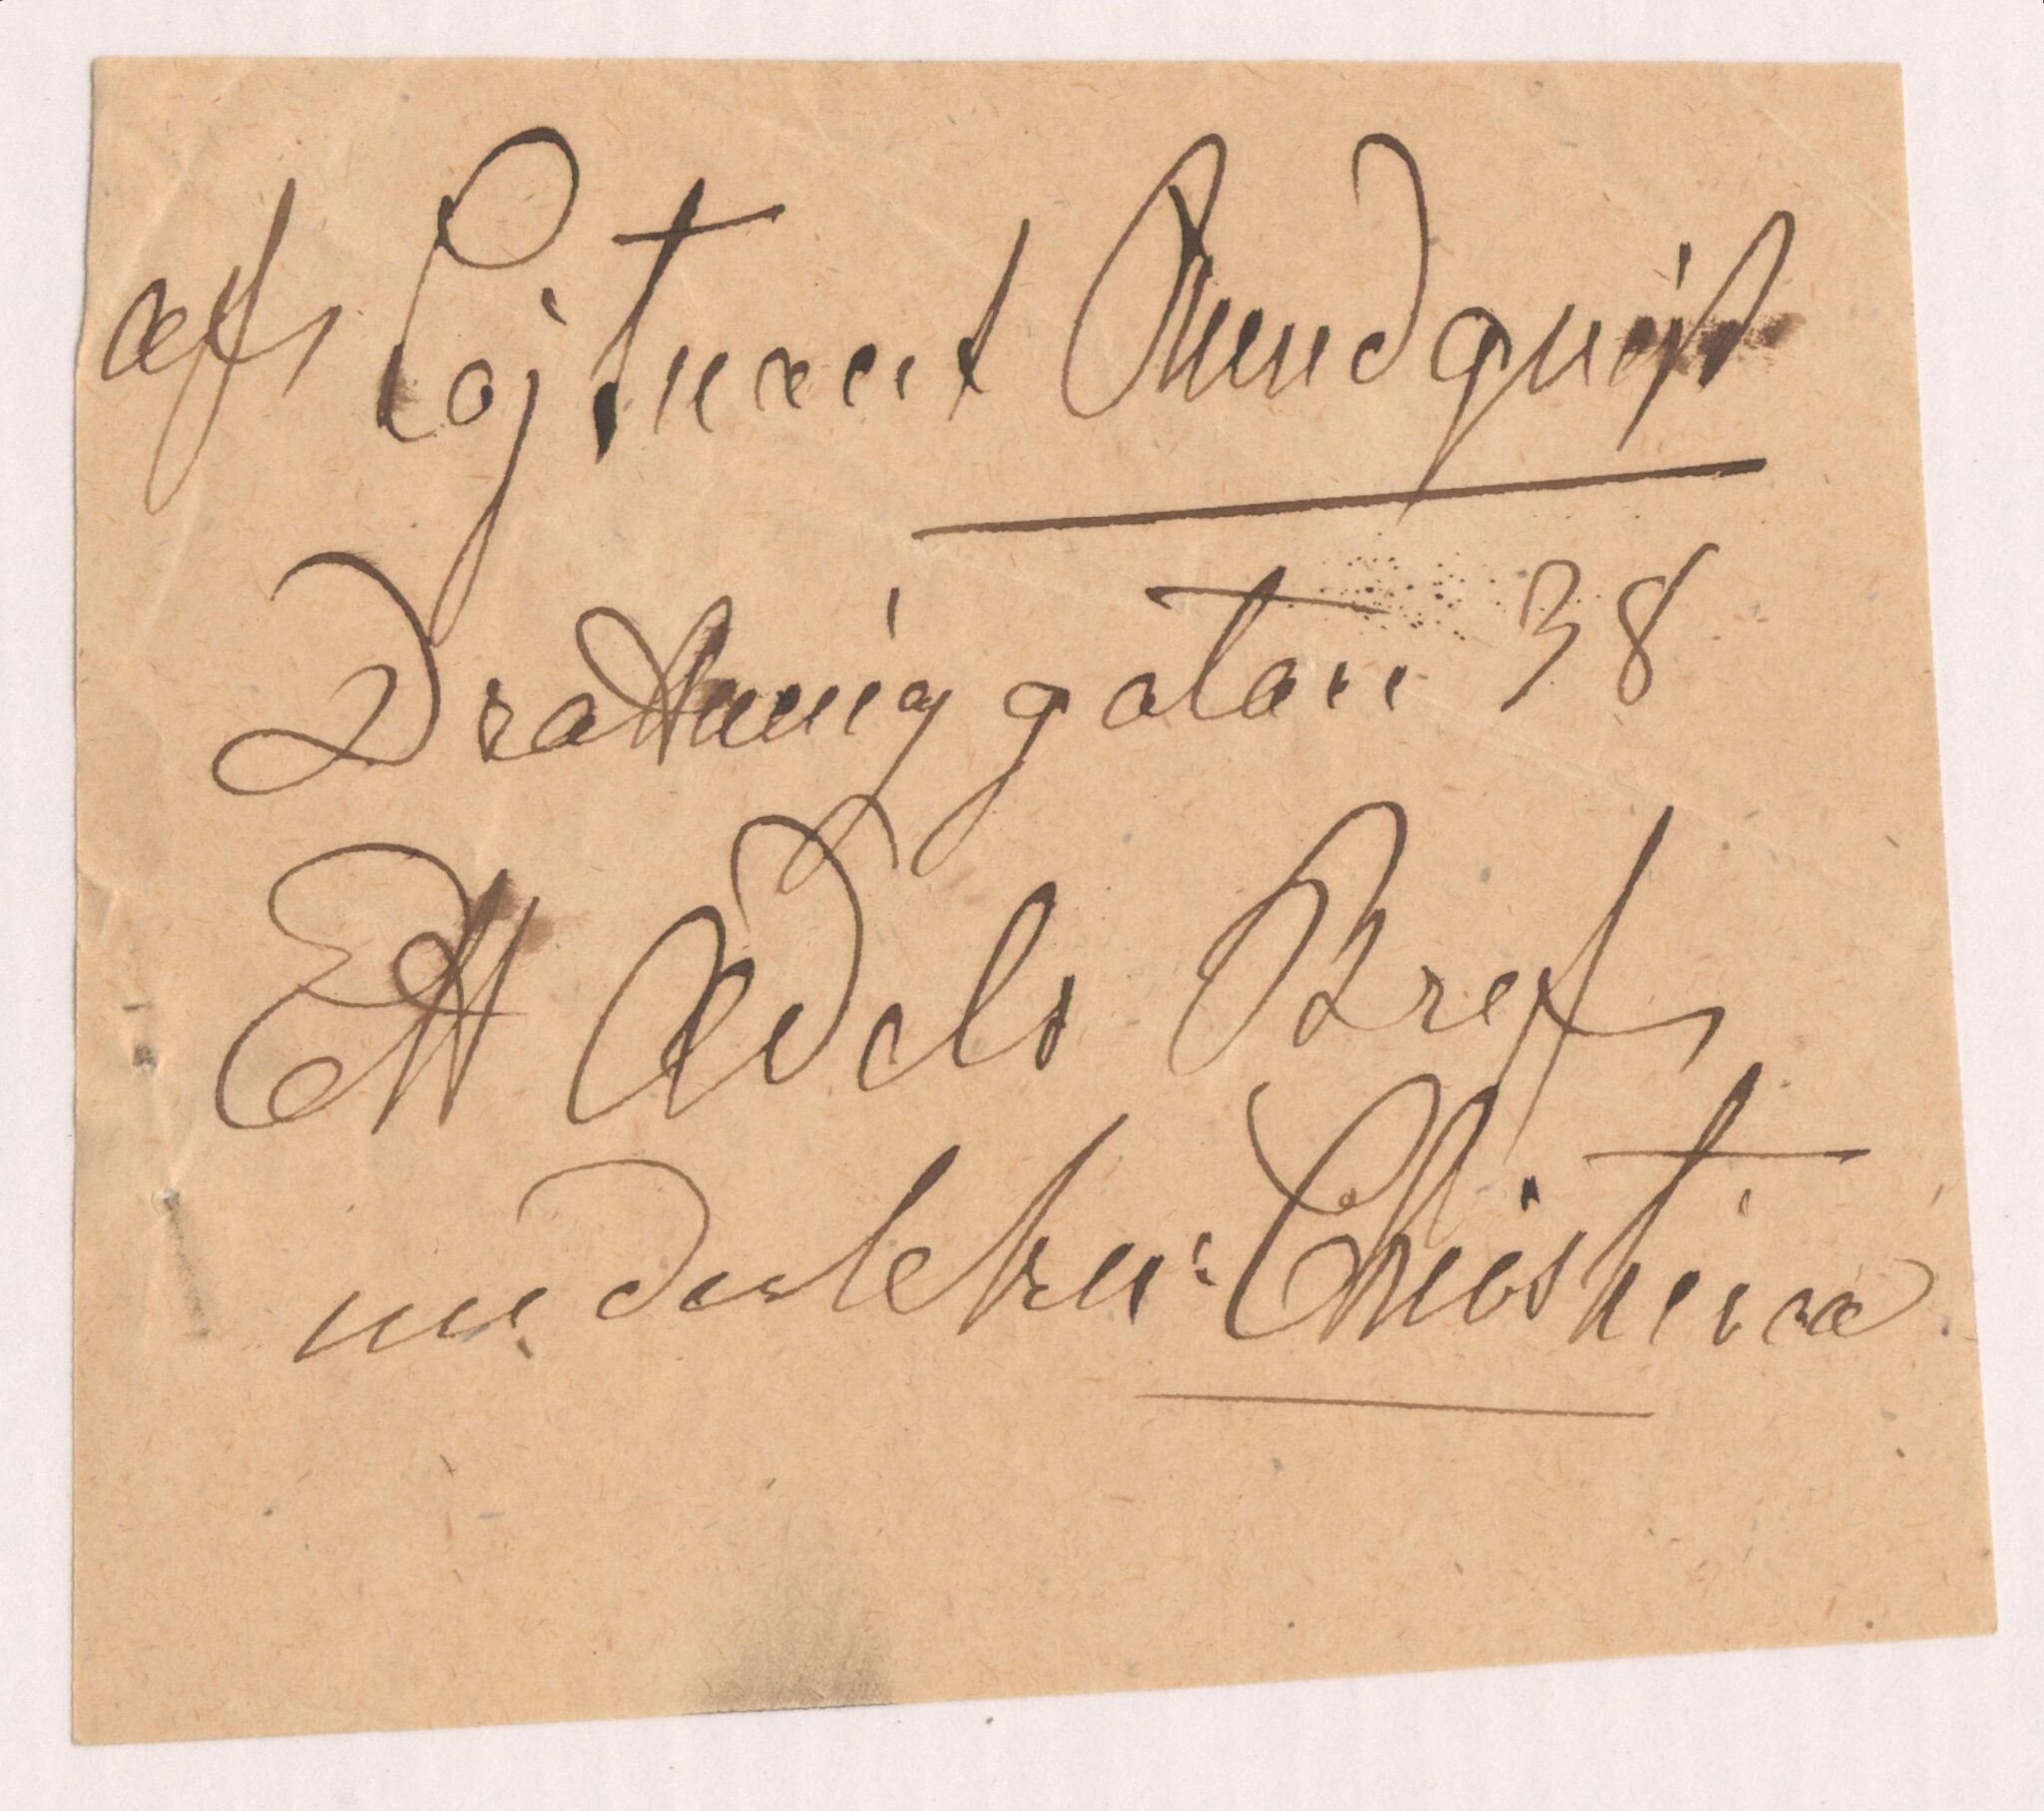 af Löjtnant Rundquist
Drottninggatan 38
Ett Adels Bref
underteckn: Christina